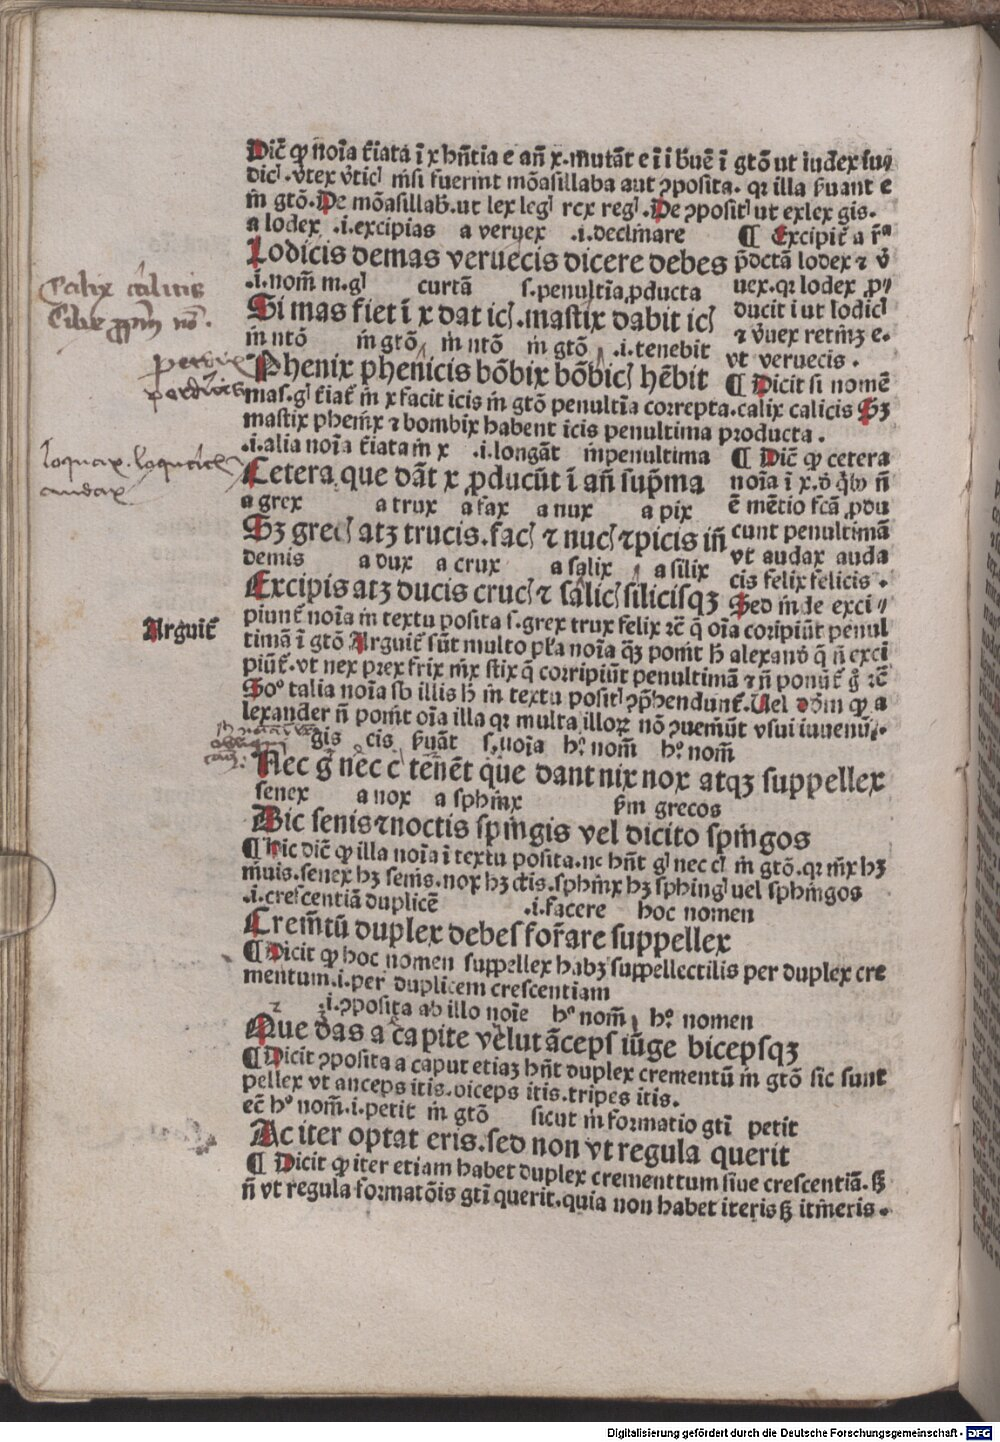 Dic̄ ꝙ noīa t̄iata ī x hn̄tia e an̄ x.mutāt e ī i b̄uē ī gtō ut iudex iu⸗
dicꝭ.v̄tex v̄ticꝭ nisi fuerint mōasillaba aut ꝯposita. qꝛ illa ẜuant e
in gtō.De mōasillab̄.ut lex legꝭ rex regꝭ.De ꝯpositꝭ ut exlex gis.
a lodex .i.excipias a veruex .i.declinare
Lodicis demas veruecis dicere debes
.i.nom̄ m.gꝭ curtā s.penultīa ꝓducta
Si mas fiet ī x dat icꝭ.mastix dabit icꝭ
in ntō in gtō in ntō in gtō .i.tenebit
Phenix phenicis bōbix bōbicꝭ hēbit
¶ Excipit̄ a r̄ᵃ
p̄dctā lodex ⁊ v̄
uex.qꝛ lodex ꝓ⸗
ducit i ut lodicꝭ
⁊ v̄uex retinꝫ e.
vt veruecis.
¶ Dicit si nomē
mas.gꝭ t̄iat̄ in x facit icis in gtō penultīa correpta.calix calicis Sꝫ
mastix phenix ⁊ bombix habent icis penultima producta.
.i.alia noīa t̄iata in x .i.longāt in penultima
Cetera que dāt x ꝓducūt ī an̄ sup̄ma
a grex a trux a fax a nux a pix
Sꝫ grecꝭ atꝫ trucis.facꝭ ⁊ nucꝭ ⁊picis in̄
demis a dux a crux a salix a silix
Excipis atꝫ ducis crucꝭ ⁊ salicꝭ silicisqꝫ
¶ Dic̄ ꝙ cetera
noīa ī x.d̄ qͥbꝫ n̄
ē mētio fcā ꝓdu
cunt penultimā
vt audax auda
cis felix felicis.
Sed inde exci⸗
piunt̄ noīa in textu posita s.grex trux felix ⁊c̄ q̄ oīa coripiūt penul
timā ī gtō Arguit̄ sūt multo pl̄a noīa qꝫ ponit h̄ alexand̄ q̄ n̄ exci
piūt̄.vt nex prex frix nix stix q̄ corripiūt penultimā ⁊ n̄ ponūt̄ g̊ ⁊c̄
Soº talia noīa sb illis h̄ in textu positꝭ ꝯp̄hendunt̄.Uel dōm ꝙ a
lexander n̄ ponit oīa illa qꝛ multa illoꝝ nō ꝯueniūt vsui iuuenū.
gis cis ẜuāt s.noīa hº nom̄ hº nom̄
Nec g̊ nec c̄ tenēt que dant nix nox atqꝫ suppellex
senex a nox a sphinx ẜm grecos
Dic senis⁊noctis spingis vel dicito spingos
¶ Hic dic̄ ꝙ illa noīa ī textu posita.nc hn̄t gꝭ nec cꝭ in gtō.qꝛ nix hꝫ
niuis.senex hꝫ senis.nox hꝫ ctis.sphinx hꝫ sphingꝭ uel sphingos
.i.crescentiā duplicē .i.facere hoc nomen
Crem̄tū duplex debes for̄are suppellex
¶ Dicit ꝙ hoc nomen suppellex habꝫ suppellectilis per duplex cre
mentum.i.per duplicem crescentiam
.i.ꝯposita ab illo noīe hº nom̄ hº nomen
Que das a capite velut āceps iūge bicepsqꝫ
¶ Dicit ꝯposita a caput etiaꝫ hn̄t duplex crementū in gtō sic sunt
pellex vt anceps itis.biceps itis.tripes itis.
ec̄ hº nom̄.i.petit in gtō sicut in formatio gtī petit
Ac iter optat eris.sed non vt regula querit
¶ Dicit ꝙ iter etiam habet duplex crementtum siue crescentiā.sꝫ
n̄ vt regula formatōis gtī querit.quia non habet iteris sꝫ itineris.
Arguit̄
Calix
audax
Digitalisierung gefördert durch die Deutsche Forschungsgemeinschaft - DFG